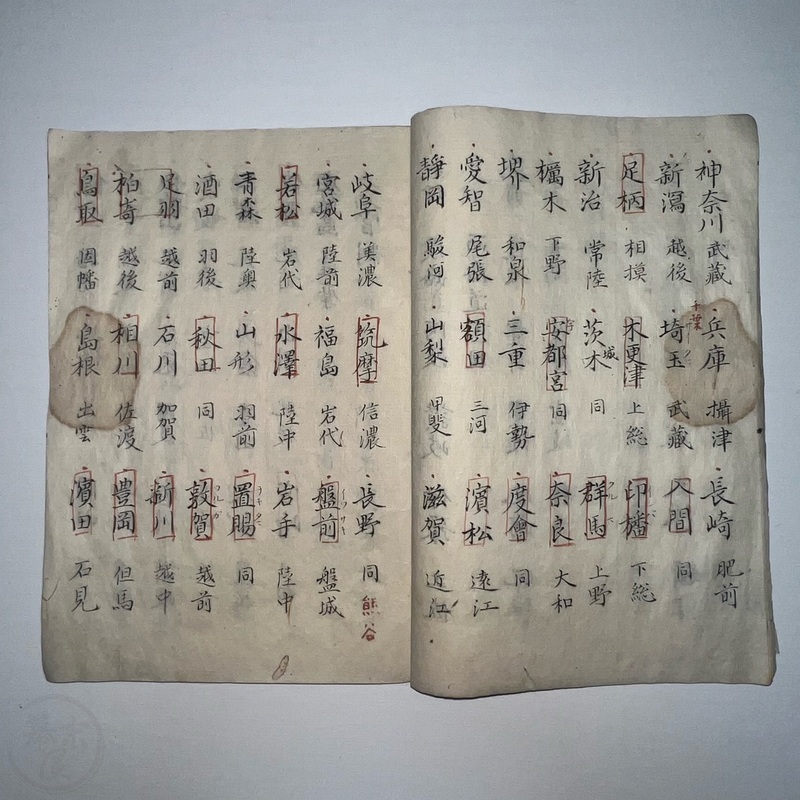 神奈川 武藏 兵庫 攝津 長崎 肥前
新潟 越後 千葉 埼玉 武藏 入間 同
足柄 相摸 木更津 上総 印旛 下総
新治 常陸 茨木 城 同 群馬 上野
櫔木 下野 安都宮 同 奈良 大和
堺 和泉 三重 伊勢 度會 同
愛智 尾張 額田 三河 濱松 遠江
靜岡 駿河 山梨 甲斐 滋賀 近江
岐阜 美濃 筑摩 信濃 長野 同 熊谷
宮城 陸前 福島 岩代 盤前 盤城
若松 岩代 水澤 陸中 岩手 陸中
青森 陸奥 山形 羽前 置賜 同
酒田 羽後 秋田 同 敦賀 越前
足羽 越前 石川 加賀 新川 越中
柏嵜 越後 相川 佐渡 豊岡 但馬
鳥取 因幡 島根 出雲 濱田 石見